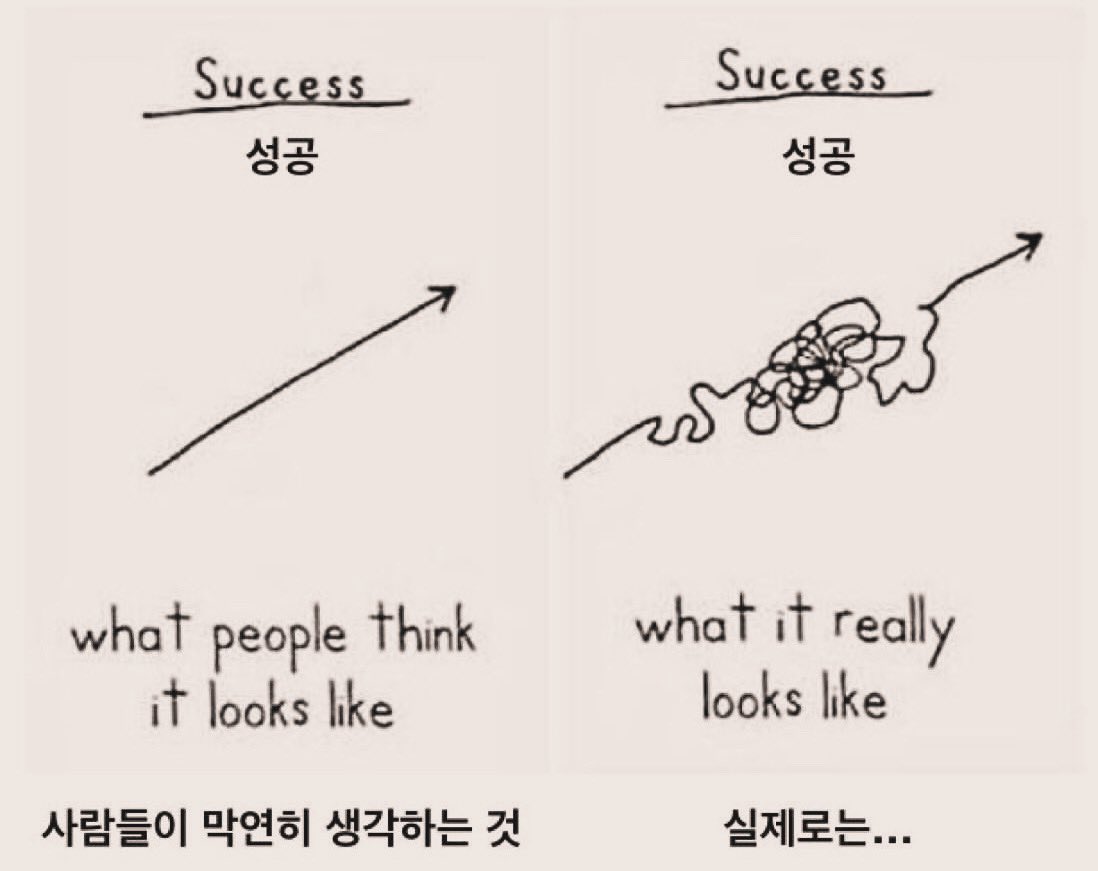 Success
성공
what people think
it looks like
사람들이 막연히 생각하는 것
Success
성공
what it really
looks like
실제로는...